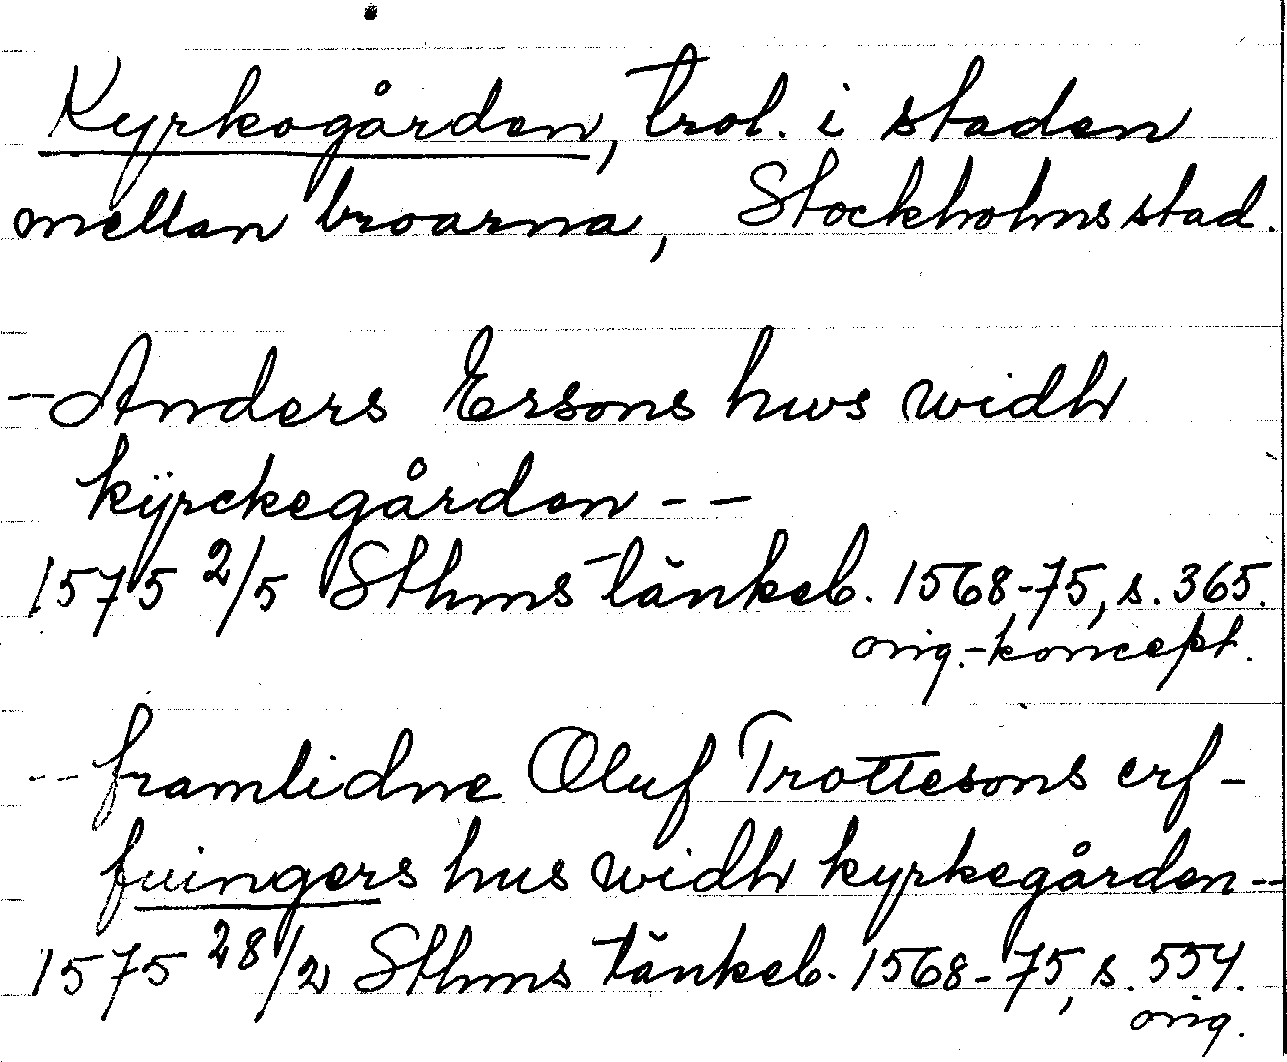 Kyrkogården, trol. i staden
mellan broarna, Stockholms stad.
- Anders Ersons hws widh
kÿrckegården - -
1575 2/5 Sthms tänkeb. 1568-75, s. 365.
orig.-koncept.
- - framlidne Oluf Trottesons erf-
fuingers hus widh kyrkegården - -
1575 28/2 Sthms tänkeb. 1568-75, s. 554.
orig.